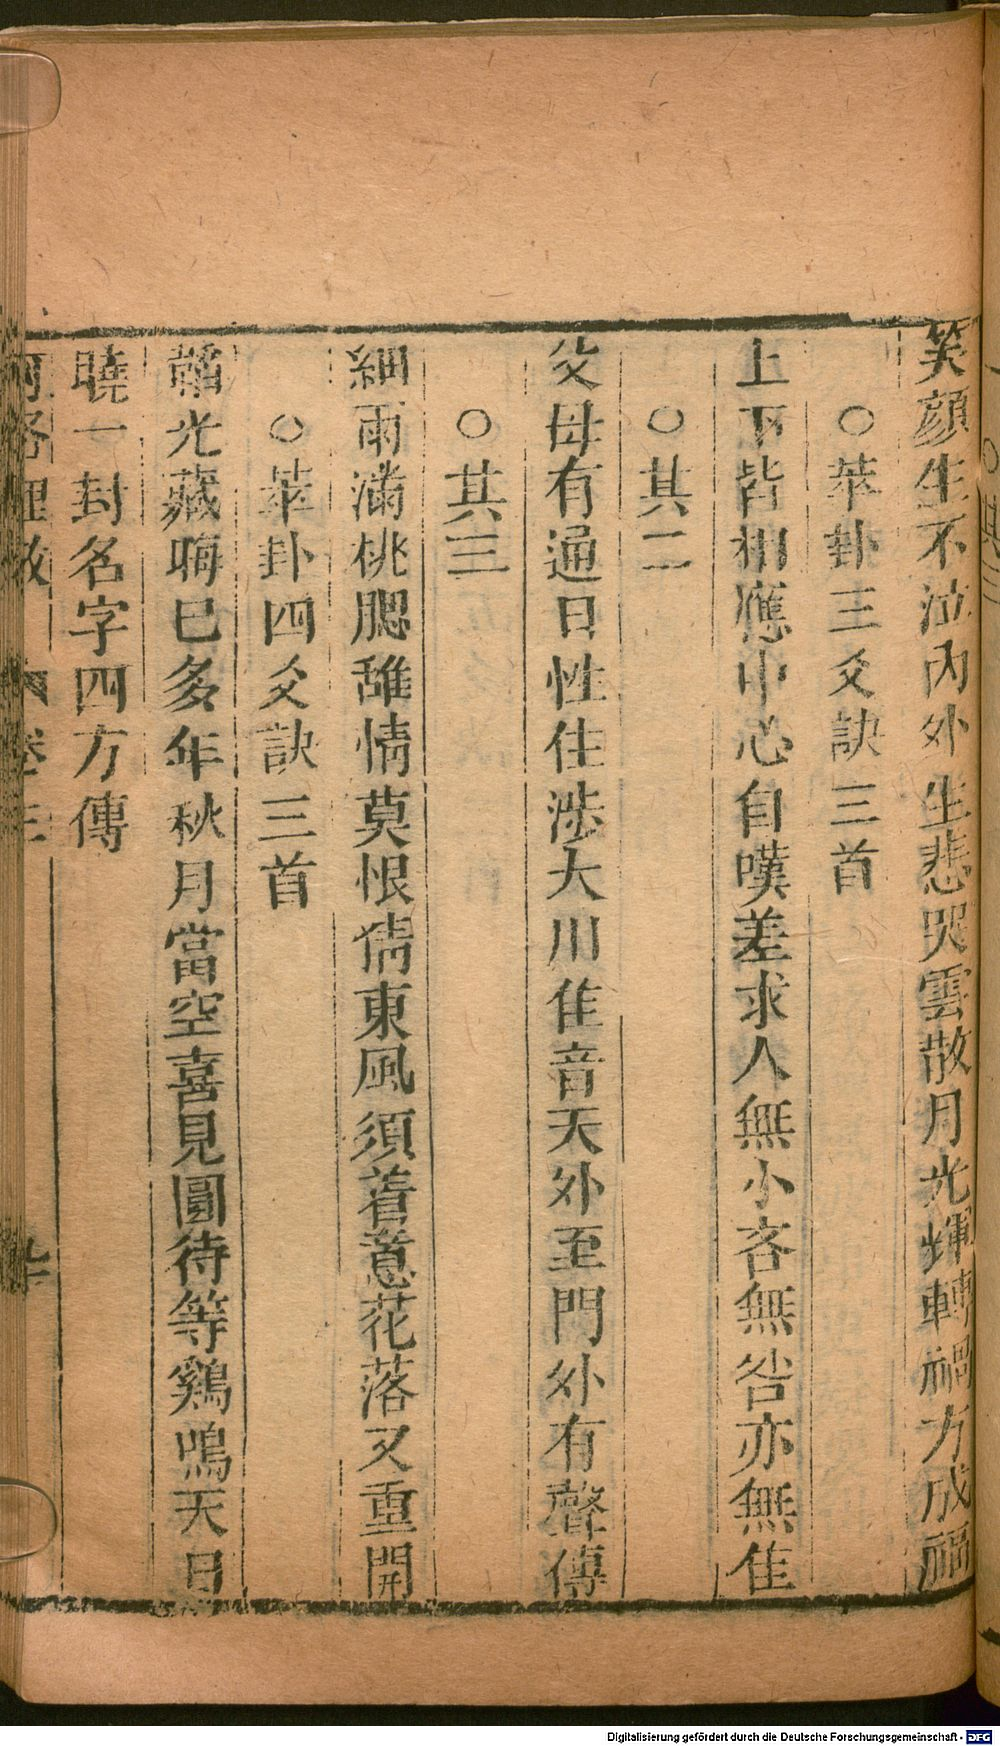 笑顏生不泣內外生悲哭雲散月光輝轉禍方成福
○萃卦三爻訣三首
上下皆相應中心自嘆差求人無小吝無咎亦無佳
○其二
父母有通日性住涉大川佳音天外至門外有聲傳
○其三
細雨滿桃腮離情莫恨猜東風須着意花落又重開
○萃卦四爻訣三首
韜光藏晦巳多年秋月當空喜見圓待等鷄鳴天日
曉一封名字四方傳
河洛理數 卷三
Digitalisierung gefördert durch die Deutsche Forschungsgemeinschaft - DFG